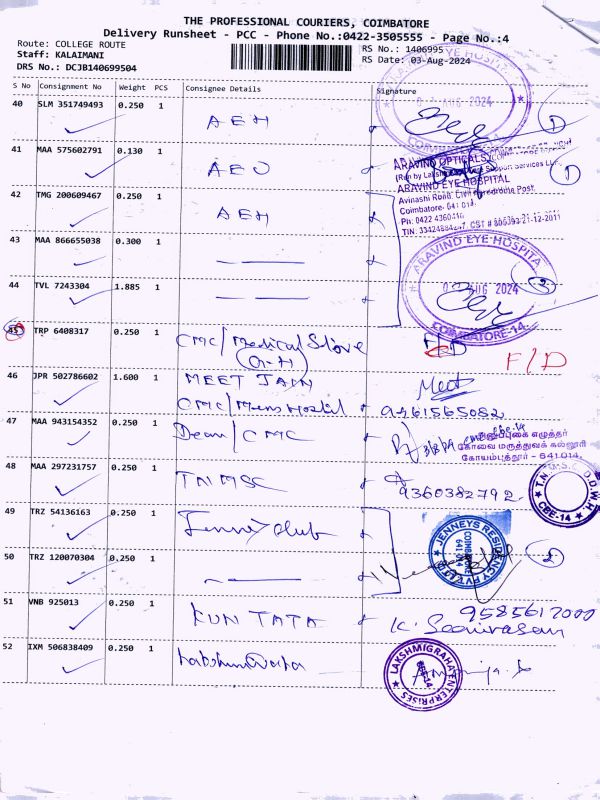 THE PROFESSIONAL COURIERS, COIMBATORE
Delivery Runsheet - PCC - Phone No.:0422-3505555 - Page No.:4
Route: COLLEGE ROUTE
Staff: KALAIMANI
DRS No.: DCJB140699504
RS No.: 1406995
RS Date: 03-Aug-2024
S No Consignment No Weight PCS Consignee Details Signature
40 SLM 351749493 0.250 1 AEH
ARAVIND EYE HOSPITA
AUG 2024
COIMBATORE-14
1
41 MAA 575602791 0.130 1 AEO
ARAVIND OPTICALS
ARAVIND EYE HOSPITAL
Avinashi Road, Civil Aerodrome Post,
Coimbatore- 641 014.
Ph: 0422 4360416
1
42 TMG 200609467 0.250 1 AEH
43 MAA 866655038 0.300 1
44 TVL 7243304 1.885 1
ARAVIND EYE HOSPITA
AUG 2024
COIMBATORE-14
2
45 TRP 6408317 0.250 1 CMC/Medical
F/D
46 JPR 502786602 1.600 1 MEET JAIN
CMC/Mens Hostel
Meet
9461565082
47 MAA 943154352 0.250 1 Dean/CMC
எழுத்தர்
கோவை மருத்துவக் கல்லூரி
கோயம்புத்தூர் - 641 014.
48 MAA 297231757 0.250 1 TNMSC
9360382792
CBE-14
49 TRZ 54136163 0.250 1 Jenney club
JENNEYS RESIDENCY PVT LTD
COIMBATORE
641 014
50 TRZ 120070304 0.250 1
2
51 VNB 925013 0.250 1 KUN TATA
9585617000
K. Seenivasan
52 IXM 506838409 0.250 1
LAKSHMIGRAHA ENTERPRISES